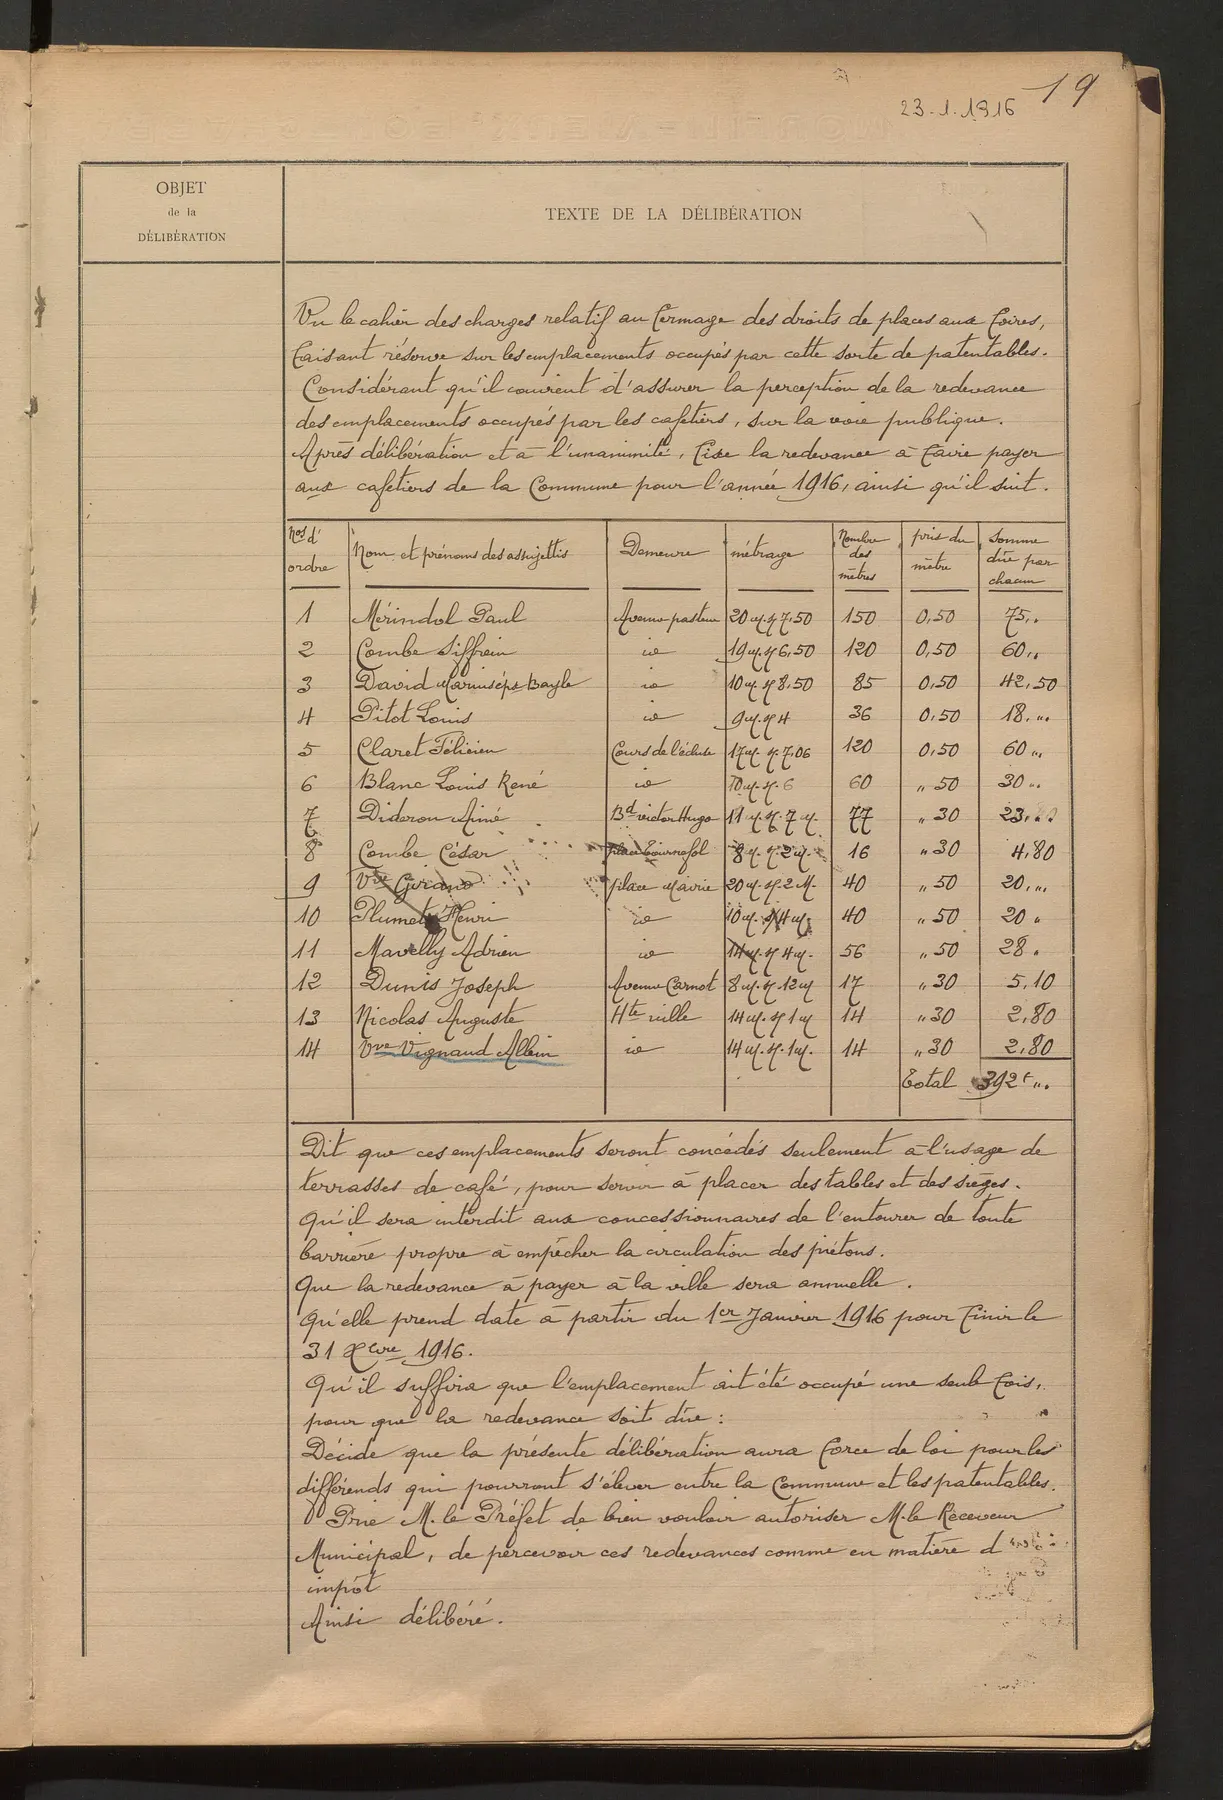 19
23.1.1916
OBJET
de la
DÉLIBÉRATION
TEXTE DE LA DÉLIBÉRATION
Vu le cahier des charges relatif au fermage des droits de places aux foires,
faisant réserve sur les emplacements occupés par cette sorte de patentables.
Considérant qu'il convient d'assurer la perception de la redevance
des emplacements occupés par les cafetiers, sur la voie publique.
Après délibération et à l'unanimité, fixe la redevance à faire payer
aux cafetiers de la Commune pour l'année 1916, ainsi qu'il suit.
Nos d'ordre Nom et prénoms des assujettis Demeure métrage Nombre des mètres prix du mètre Somme dûe par chacun
1 Mérindol Paul Avenue pasteur 20m. s/ 7,50 150 0,50 75,"
2 Combe Siffrein id 19m. s/ 6,50 120 0,50 60,"
3 David Bayle id 10m. s/ 8,50 85 0,50 42,50
4 Pitot Louis id 9m. s/ 4 36 0,50 18,"
5 Claret Félicien Cours de 17m. s/ 7.06 120 0,50 60,"
6 Blanc Louis René id 10m. s/ 6 60 " 50 30"
7 Dideron Aimé Bd victor Hugo 11m. s/ 7m. 77 " 30 23,
8 Combe César place Tournefol 8m. s/ 2m. 16 " 30 4,80
9 Vve Girand place Mairie 20m. s/ 2m. 40 " 50 20,"
10 Plumet Henri id 10m. s/ 4m. 40 " 50 20 "
11 Mavelly Adrien id 14m. s/ 4m. 56 " 50 28 "
12 Dunis Joseph Avenue Carnot 8m. s/ 12m 17 " 30 5,10
13 Nicolas Auguste Hte ville 14m. s/ 1m 14 " 30 2,80
14 Vve Vignaud Albin id 14m. s/ 1m. 14 " 30 2,80
Total 392f ".
Dit que ces emplacements seront concédés seulement à l'usage de
terrasses de café, pour servir à placer des tables et des sièges.
Qu'il sera interdit aux concessionnaires de l'entourer de toute
barrière propre à empêcher la circulation des piétons.
Que la redevance à payer à la ville sera annuelle.
Qu'elle prend date à partir du 1er Janvier 1916 pour finir le
31 Xbre 1916.
Qu'il suffira que l'emplacement ait été occupé une seule fois,
pour que la redevance soit dûe :
Décide que la présente délibération aura force de loi pour les
différends qui pourront s'élever entre la Commune et les patentables.
Prie M. le Préfet de bien vouloir autoriser M. le Receveur
Municipal, de percevoir ces redevances comme en matière d
impôt
Ainsi délibéré.